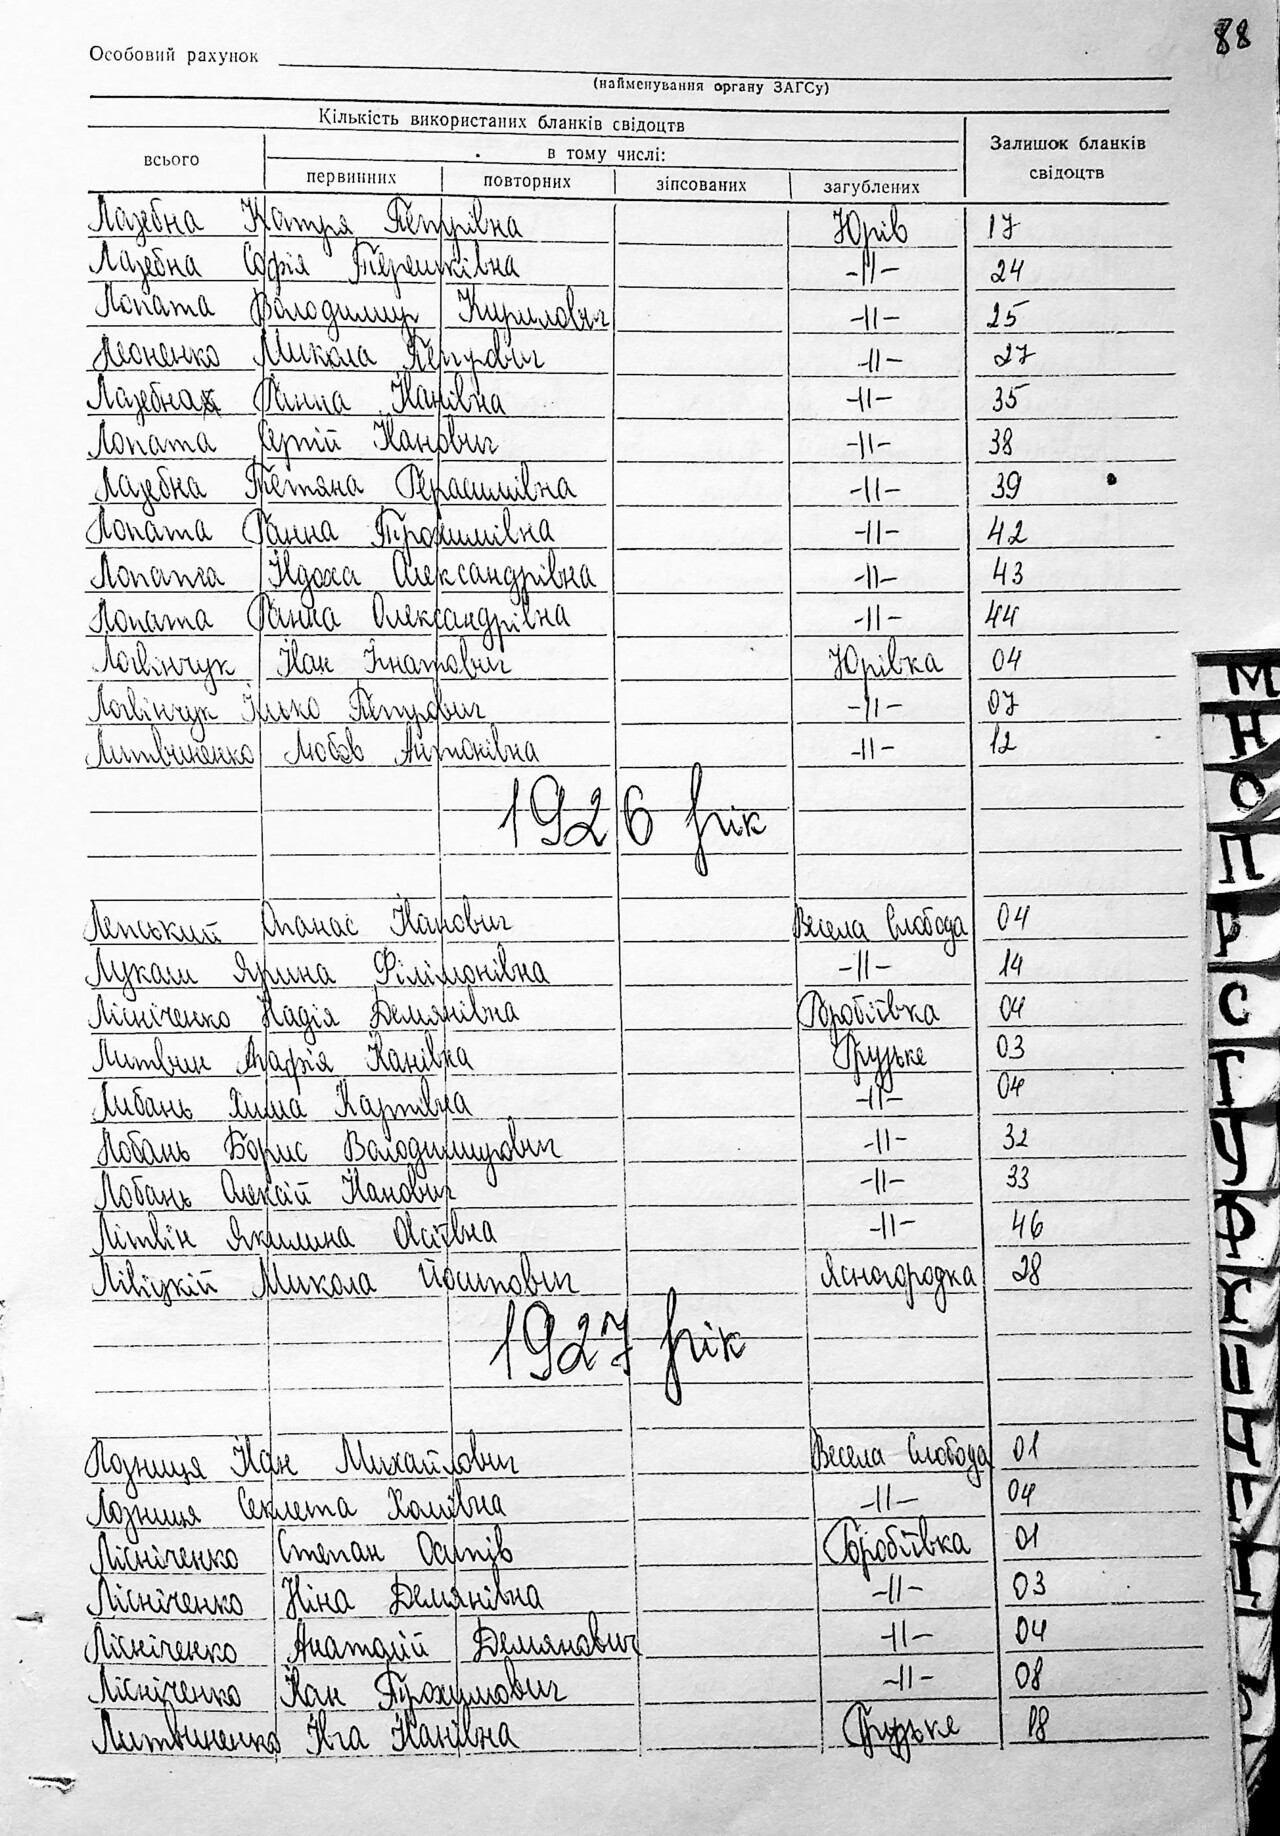 88
Особовий рахунок
(найменування органу ЗАГСу)
Кількість використаних бланків свідоцтв
Залишок бланків свідоцтв
всього
в тому числі:
первинних повторних зіпсованих загублених
Лазебна Катря Петрівна Юрів 17
Лазебна Софія Терешківна -||- 24
Лопата Володимир Кирилович -||- 25
Леоненко Микола Петрович -||- 27
Лазебна Ганна Іванівна -||- 35
Лопата Сергій Іванович -||- 38
Лазебна Тетяна Герасимівна -||- 39
Лопата Ганна Трохимівна -||- 42
Лопата Явдоха Олександрівна -||- 43
Лопата Ганна Олександрівна -||- 44
Логвінчук Іван Ігнатович Юрівка 04
Логвінчук Ілько Петрович -||- 07
Литвиненко Любов Антонівна -||- 12
1926 рік
Лепський Опанас Іванович Весела Слобода 04
Лукаш Ярина Філімонівна -||- 14
Лісніченко Надія Демянівна Горобіївка 04
Литвин Агафія Іванівна Грузьке 03
Либань Хима Карпівна -||- 04
Лобань Борис Володимирович -||- 32
Лобань Олексій Іванович -||- 33
Літвін Якилина Овсіївна -||- 46
Лівіцкій Микола Йосипович Ясногородка 28
1927 рік
Лозниця Іван Михайлович Весела Слобода 01
Лозниця Секлета Хомівна -||- 04
Лісніченко Степан Осипів Горобіївка 01
Лісніченко Ніна Демянівна -||- 03
Лісніченко Анатолій Демянович -||- 04
Лісніченко Іван Трохимович -||- 08
Литвиненко Івга Іванівна Грузьке 18
М
Н
О
П
Р
С
Т
У